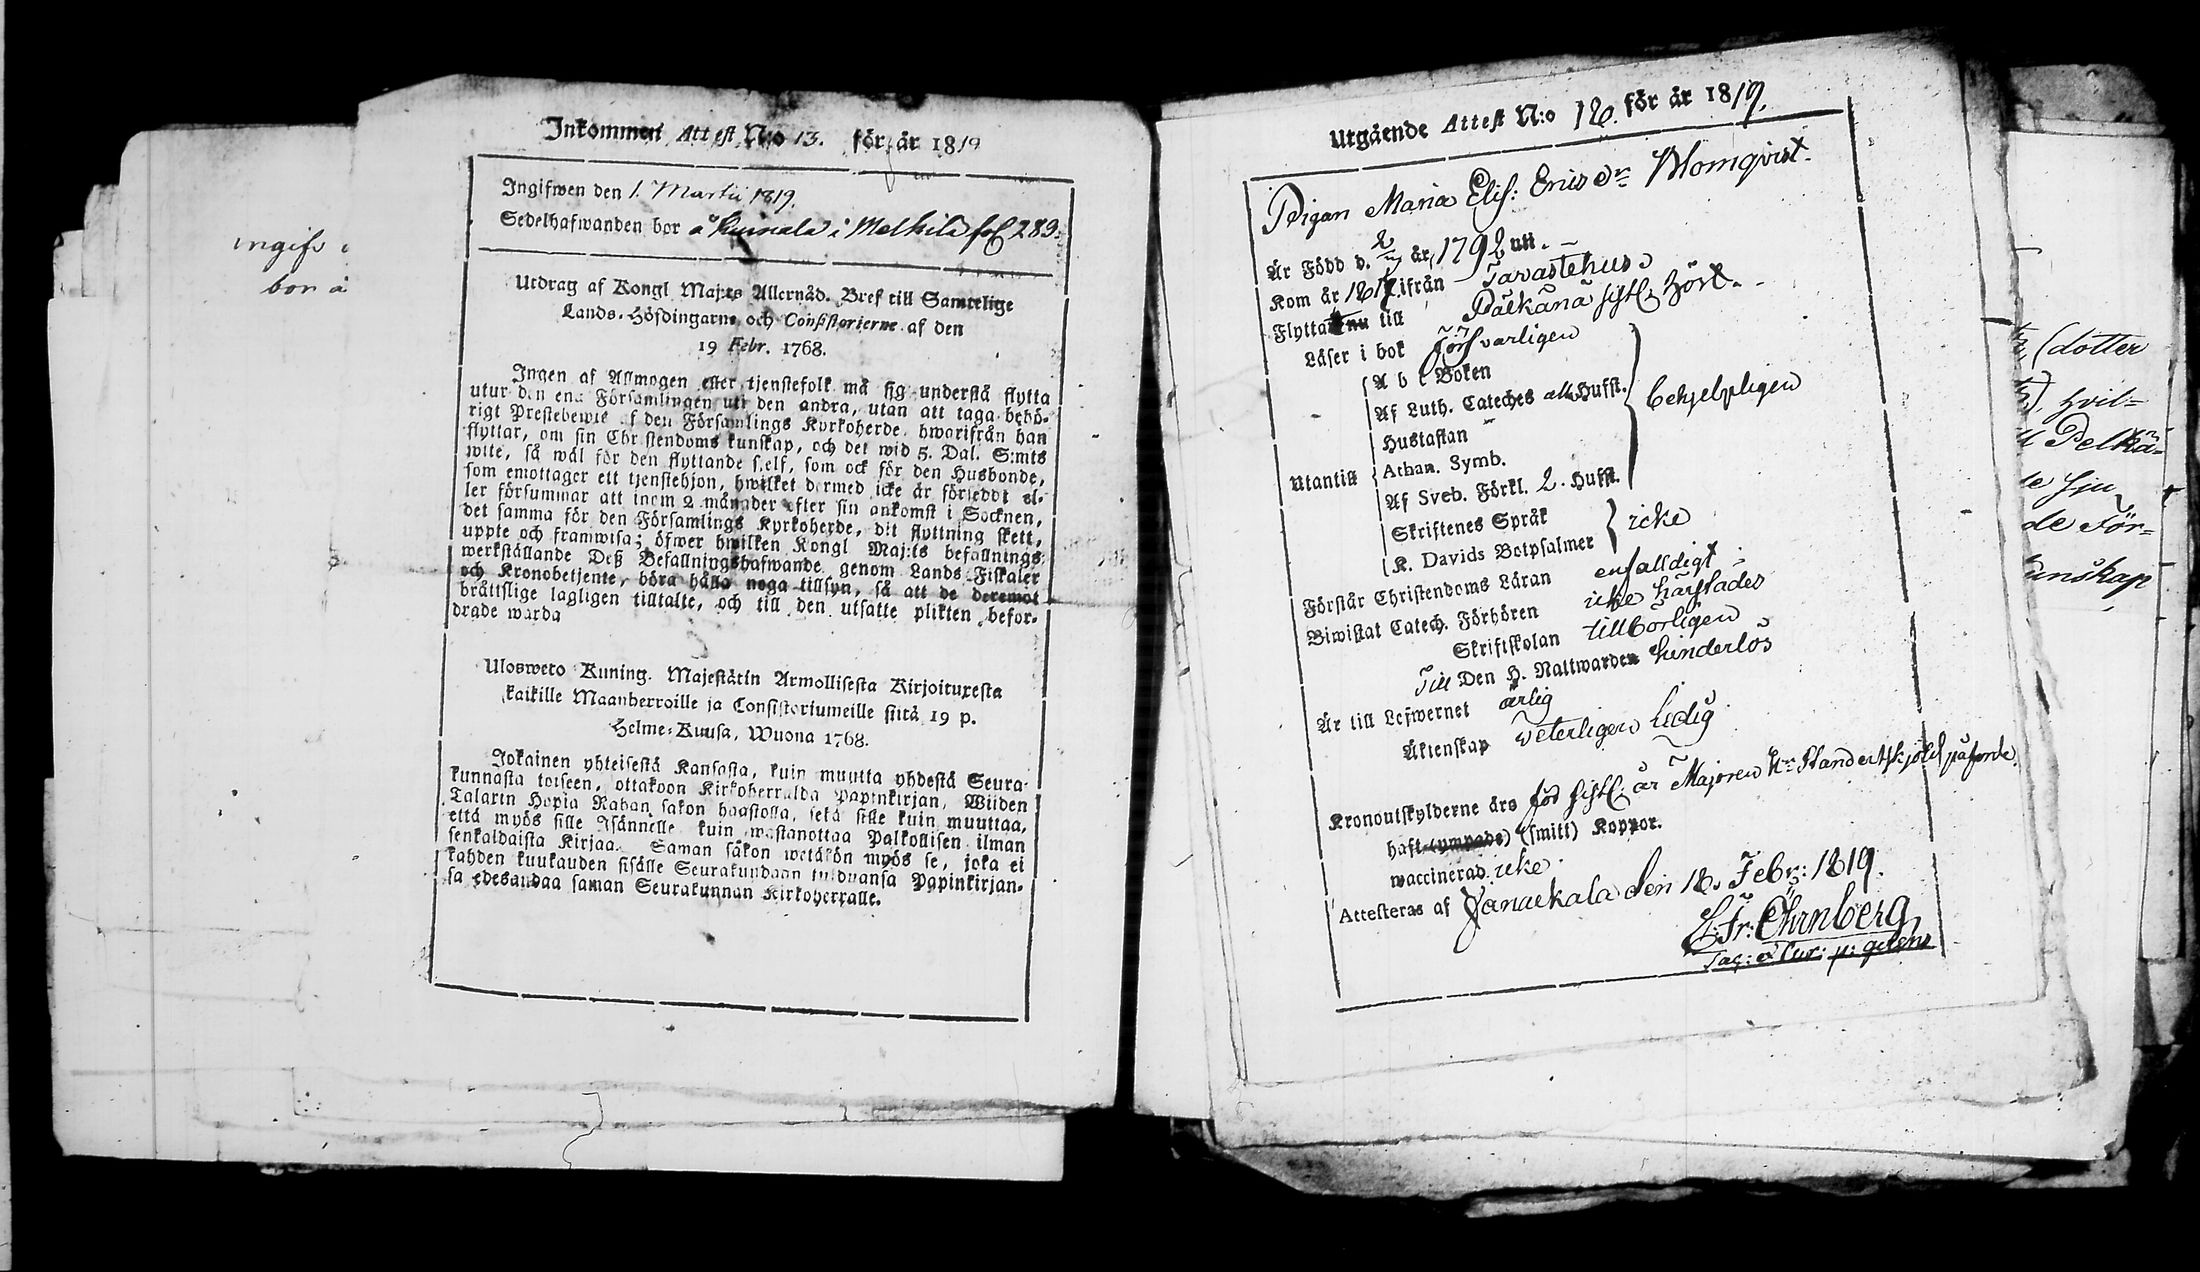 ingifv
bor å
Inkommen Attest N:o 13. för år 1819
Ingifwen den 1. Martii 1819.
Sedelhafwanden bor å Kuirala i Melkila fol 289.
Utdrag af Kongl Maj:ts Allernåd. Bref till Samtelige
Lands-Höfdingarne och Consistorierne af den
19 Febr. 1768.
Ingen af Allmogen eller tjenstefolk må sig understå flytta
utur den ena Församlingen uti den andra, utan att taga behö-
rigt Prestebewis af den Församlings Kyrkoherde, hwarifrån han
flyttar, om sin Christendoms kunskap, och det wid 5. Dal. S:mts
wite, så wäl för den flyttande sielf, som ock för den Husbonde,
som emottager ett tjenstehjon, hwilket dermed icke är förseddt el-
ler försummar att inom 2 månader efter sin ankomst i Socknen,
det samma för den Församlings Kyrkoherde, dit flyttning skett,
uppte och framwisa; öfwer hwilken Kongl Maj:ts befallnings
werkställande Deß Befallningshafwande genom Lands-Fiskaler
och Kronobetjente, böra hålla noga tillsyn, så att de deremot
bråttslige lagligen tilltalte, och till den utsatte plikten befor-
drade warda
Ulosweto Kuning. Majestätin Armollisesta Kirjoituxesta
kaikille Maanherroille ja Consistoriumeille siitä 19 p.
Helme-Kuusa, Wuona 1768.
Jokainen yhteisestä Kansasta, kuin muutta yhdestä Seura-
kunnasta toiseen, ottakoon Kirkoherralda Papinkirjan, Wiiden
Talarin Hopia Rahan sakon haastolla, sekä sille kuin muuttaa,
että myös sille Isännelle kuin wastanottaa Palkollisen ilman
senkaldaista Kirjaa. Saman sakon wetäkön myös se, joka ei
kahden kuukauden sisälle Seurakundaan tulduansa Papinkirjan-
sa edesandaa saman Seurakunnan Kirkoherralle.
Utgående Attest N:o 18. för år 1819.
Pigan Maria Elis: Ericsdr Blomqvist.
Är Född d. 2/7 år 1792 uti
Kom år 1817 ifrån Tavastehus
Flyttar nu till Pälkänä sistl. Höst.
Läser i bok försvarligen
A b c Boken
Af Luth. Cateches alla Hufst.
Hustaflan
behjelpligen
Utantill Athan. Symb.
Af Sveb. Förkl. 2. Hufst.
Skriftenes Språk
icke
K. Davids Botpsalmer
Förstår Christendoms Läran enfalldigt
Biwistat Catech. Förhören icke härstädes
Skriftskolan tillbörligen
Till Den H. Nattwarden hinderlös
Är till Lefwernet ärlig
Äktenskap veterligen ledig
Kronoutskylderne äro för sistl: år Majoren Hr Standertskjöld påförde.
haft (ympade) (smitt) Koppor.
waccinerad icke
Attesteras af Janackala den 18. Febr: 1819.
Fr: Öhrnberg
(dotter
hvil=
Pelkä=
sju
de För=
kunskap